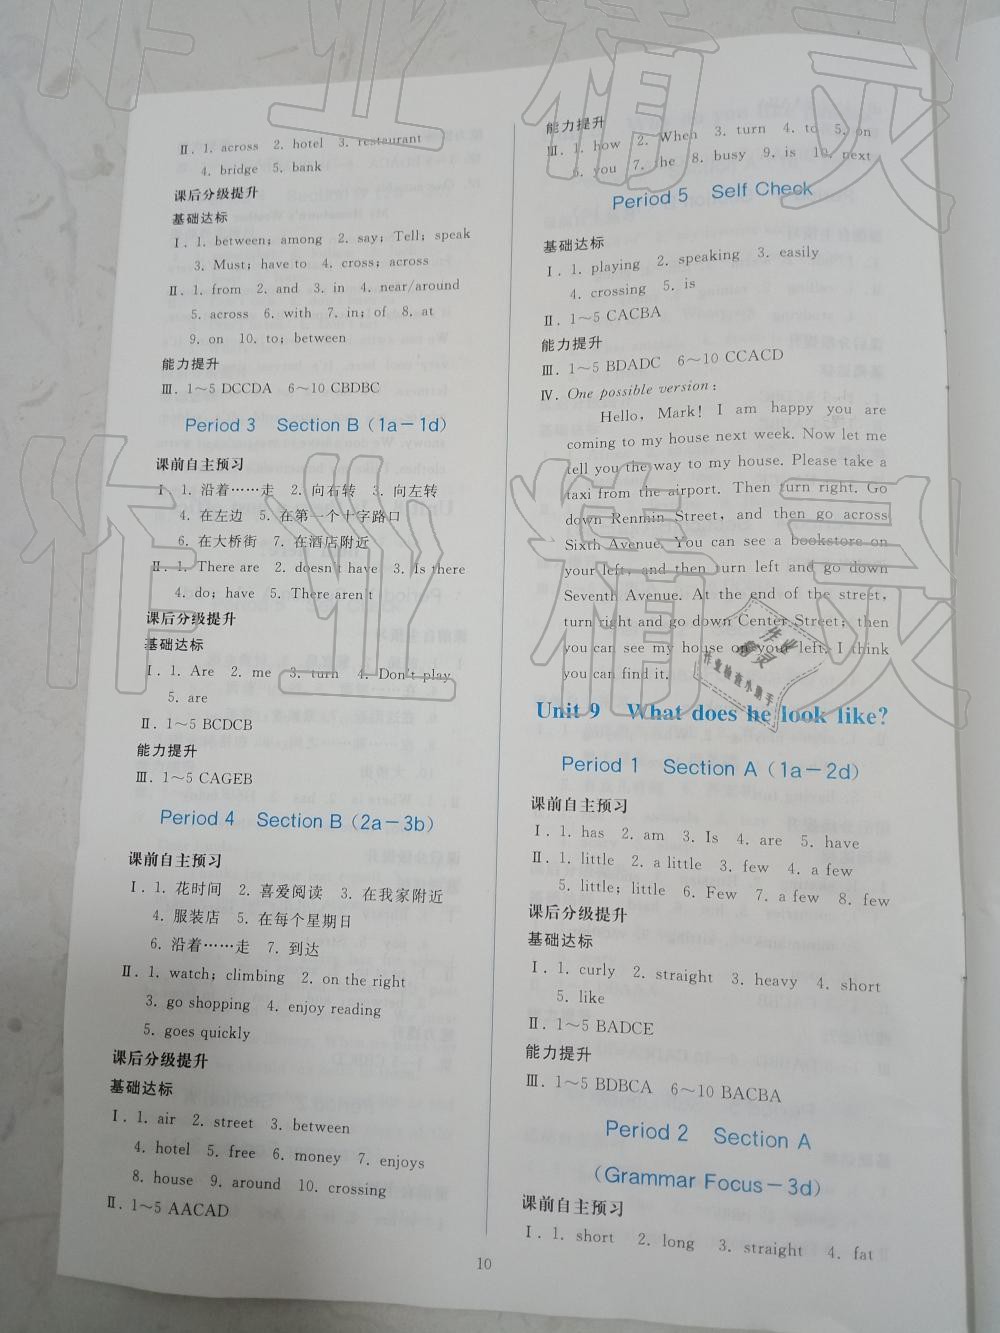 Ⅱ. 1. across  2. hotel  3. restaurant
4. bridge  5. bank
课后分级提升
基础达标
Ⅰ. 1. between; among  2. say; Tell; speak
3. Must; have to  4. cross; across
Ⅱ. 1. from  2. and  3. in  4. near/around
5. across  6. with  7. in; of  8. at
9. on  10. to; between
能力提升
Ⅲ. 1～5 DCCDA  6～10 CBDBC
Period 3  Section B (1a－1d)
课前自主预习
Ⅰ. 1. 沿着……走  2. 向右转  3. 向左转
4. 在左边  5. 在第一个十字路口
6. 在大桥街  7. 在酒店附近
Ⅱ. 1. There are  2. doesn't have  3. Is there
4. do; have  5. There aren't
课后分级提升
基础达标
Ⅰ. 1. Are  2. me  3. turn  4. Don't play
5. are
Ⅱ. 1～5 BCDCB
能力提升
Ⅲ. 1～5 CAGEB
Period 4  Section B (2a－3b)
课前自主预习
Ⅰ. 1. 花时间  2. 喜爱阅读  3. 在我家附近
4. 服装店  5. 在每个星期日
6. 沿着……走  7. 到达
Ⅱ. 1. watch; climbing  2. on the right
3. go shopping  4. enjoy reading
5. goes quickly
课后分级提升
基础达标
Ⅰ. 1. air  2. street  3. between
4. hotel  5. free  6. money  7. enjoys
8. house  9. around  10. crossing
Ⅱ. 1～5 AACAD
能力提升
Ⅲ. 1. how  2. When  3. turn  4. to  5. on
6. you  7. the  8. busy  9. is  10. next
Period 5  Self Check
基础达标
Ⅰ. 1. playing  2. speaking  3. easily
4. crossing  5. is
Ⅱ. 1～5 CACBA
能力提升
Ⅲ. 1～5 BDADC  6～10 CCACD
Ⅳ. One possible version:
Hello, Mark! I am happy you are
coming to my house next week. Now let me
tell you the way to my house. Please take a
taxi from the airport. Then turn right. Go
down Renmin Street, and then go across
Sixth Avenue. You can see a bookstore on
your left, and then turn left and go down
Seventh Avenue. At the end of the street,
turn right and go down Center Street; then
you can see my house on your left. I think
you can find it.
Unit 9  What does he look like?
Period 1  Section A (1a－2d)
课前自主预习
Ⅰ. 1. has  2. am  3. Is  4. are  5. have
Ⅱ. 1. little  2. a little  3. few  4. a few
5. little; little  6. Few  7. a few  8. few
课后分级提升
基础达标
Ⅰ. 1. curly  2. straight  3. heavy  4. short
5. like
Ⅱ. 1～5 BADCE
能力提升
Ⅲ. 1～5 BDBCA  6～10 BACBA
Period 2  Section A
(Grammar Focus－3d)
课前自主预习
Ⅰ. 1. short  2. long  3. straight  4. fat
10
作业精灵
作业精灵
作业
精灵
作业检查小助手